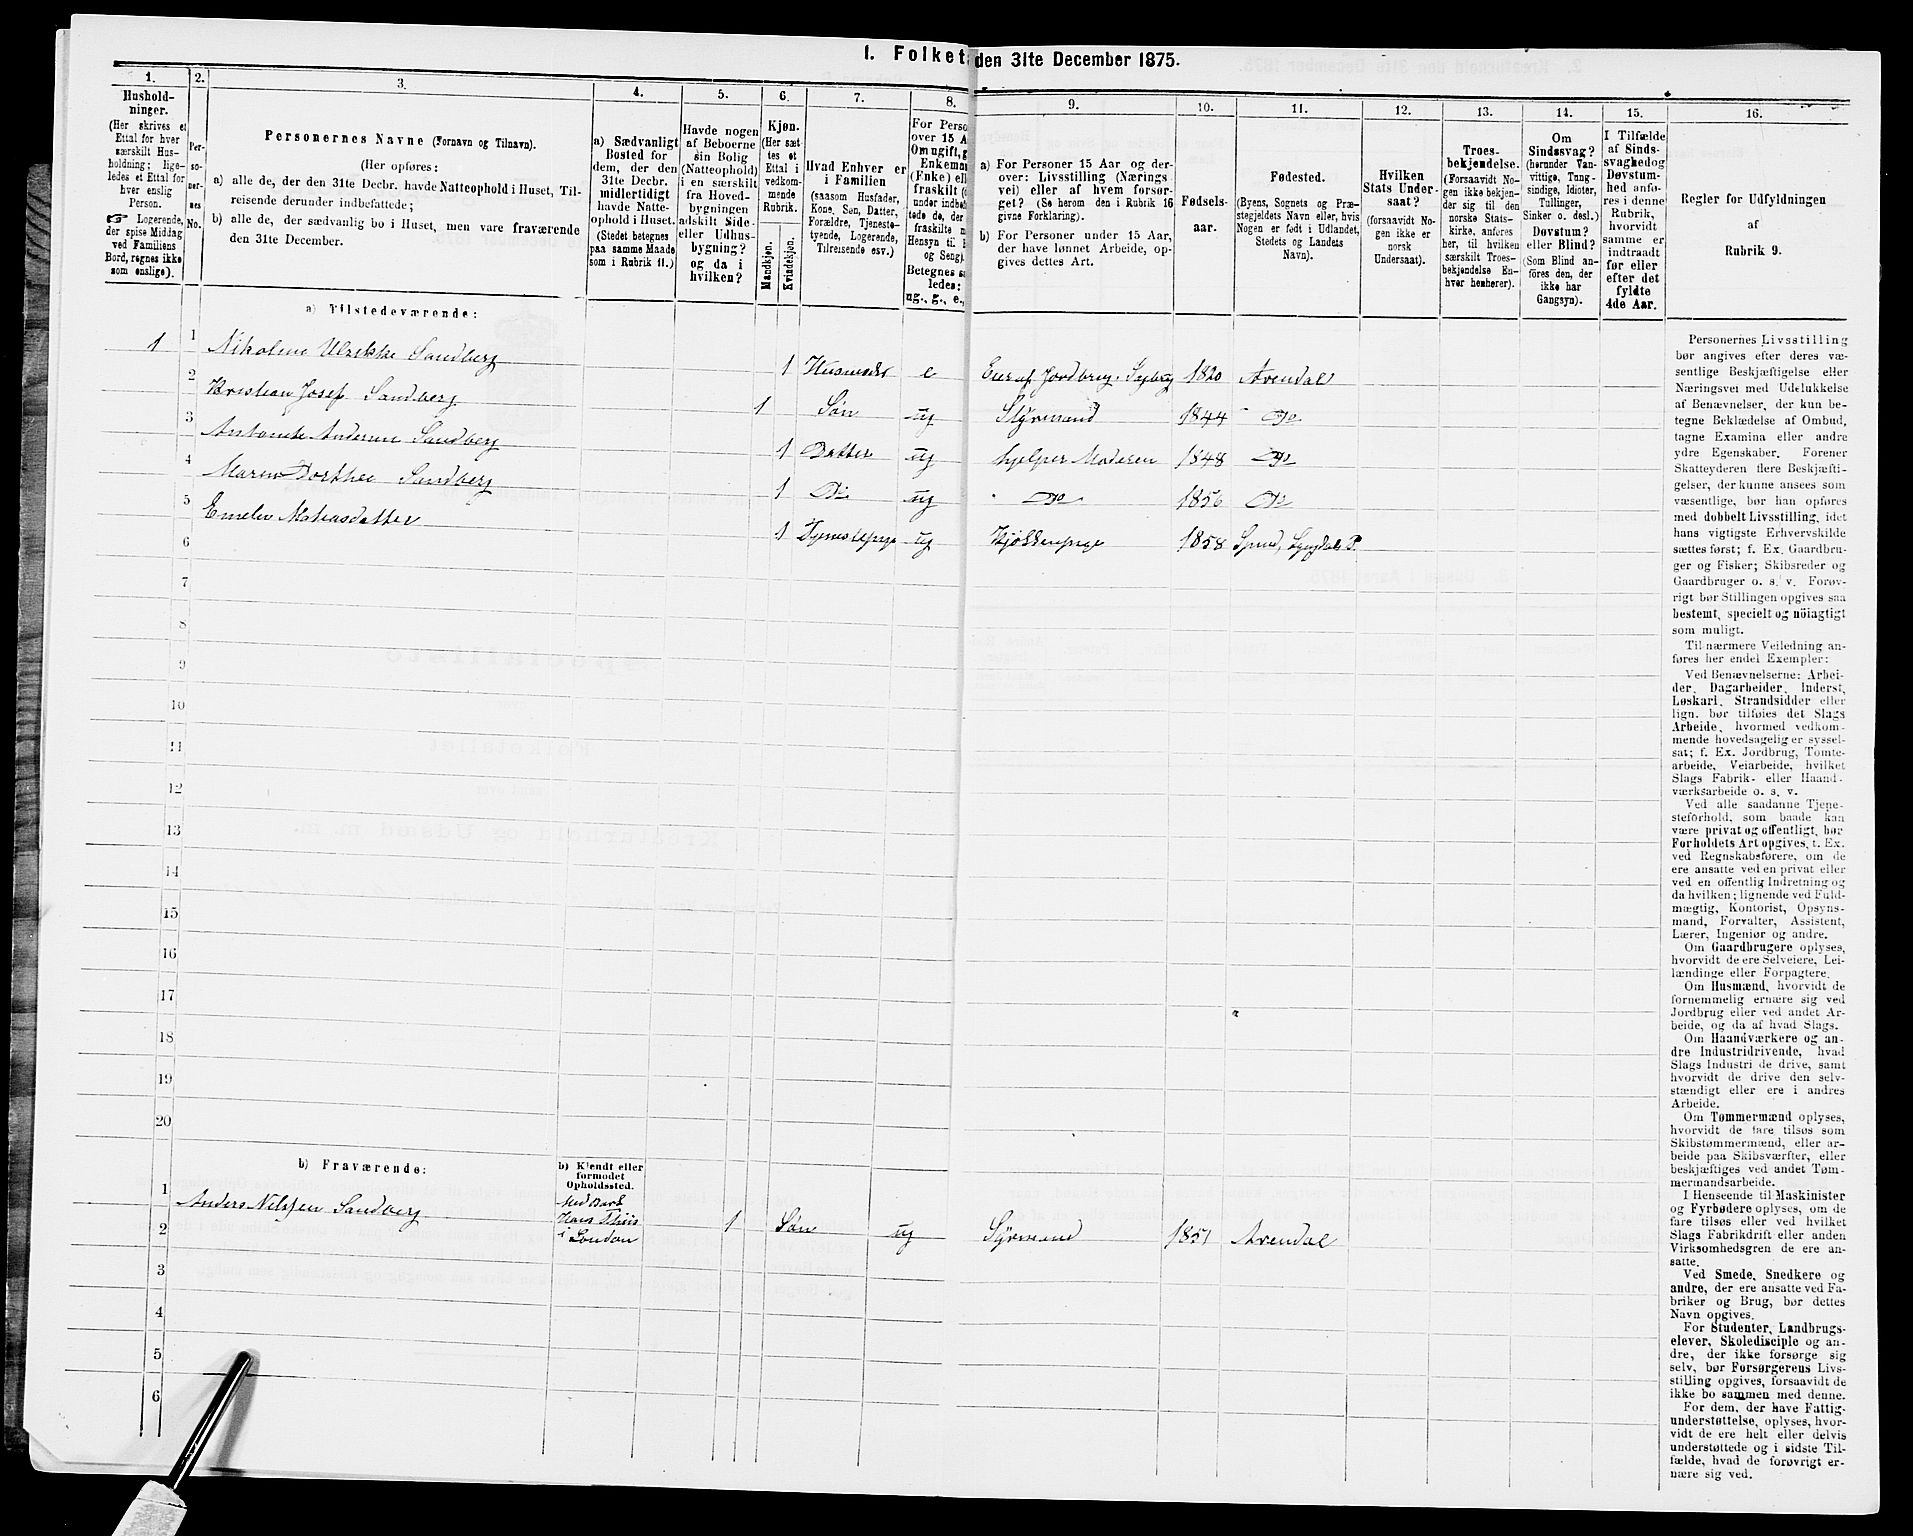 1. Folket den 31te December 1875.
1. 2. 3. 4. 5. 6. 7. 8. 9. 10. 11. 12. 13. 14. 15. 16.
Hushold-
ninger.
(Her skrives et
Ettal for hver
særskilt Hus-
holdning; lige-
ledes et Ettal for
hver enslig
Person.
☞ Logerende,
der spise Middag
ved Familiens
Bord, regnes ikke
som enslige).
Per-
so-
ner-
nes
No.
Personernes Navne (Fornavn og Tilnavn).
(Her opføres:
a) alle de, der den 31te Decbr. havde Natteophold i Huset, Til-
reisende derunder indbefattede;
b) alle de, der sædvanlig bo i Huset, men vare fraværende
den 31te December.
a) Sædvanligt
Bosted for
dem, der den
31te Decbr.
midlertidigt
havde Natte-
ophold i Huset.
(Stedet betegnes
paa samme Maade
som i Rubrik 11.)
Havde nogen
af Beboerne
sin Bolig
(Natteophold)
i en særskilt
fra Hoved-
bygningen
adskilt Side-
eller Udhus-
bygning?
og da i
hvilken?
Kjøn.
(Her sæt-
tes et
Ettal i
vedkom-
mende
Rubrik.
Mandkjøn.
Kvindekjøn.
Hvad Enhver er
i Familien
(saasom Husfader,
Kone, Søn, Datter,
Forældre, Tjeneste-
tyende, Logerende,
Tilreisende osv.)
For Perso
over 15 A
Om ugift, g
Enkema
(Enke) ell
fraskilt (
under indbef
tede de, der
fraskilte
Hensyn til
og Seng).
Betegnes s
ledes:
ug., g., e.,
a) For Personer 15 Aar og der-
over: Livsstilling (Nærings-
vei) eller af hvem forsør-
get? (Se herom den i Rubrik 16
givne Forklaring).
b) For Personer under 15 Aar,
der have lønnet Arbeide, op-
gives dettes Art.
Fødsels-
aar.
Fødested.
(Byens, Sognets og Præ-
stegjeldets Navn eller, hvis
Nogen er født i Udlandet,
Stedets og Landets
Navn).
Hvilken
Stats Under-
saat?
(forsaavidt No-
gen ikke er
norsk
Undersaat).
Troes-
bekjendelse.
(Forsaavidt No-
gen ikke bekjen-
der sig til den
norske Stats-
kirke, anføres
her, til hvilken
særskilt Troes-
bekjendelse En-
hver henhører).
Om
Sindssvag?
(herunder Van-
vittige, Tung-
sindige, Idioter,
Tullinger,
Sinker o. desl.)
Døvstum?
eller Blind?
(Som Blind an-
føres den, der
ikke har
Gangsyn).
I Tilfælde
af Sinds-
svaghed og
Døvstum-
hed anfø-
res i denne
Rubrik,
hvorvidt
samme er
indtraadt
før eller
efter det
fyldte
4de Aar.
Regler for Udfyldningen
af
Rubrik 9.
a) Tilstedeværende:
1 1 Nikoline Ulrikke Sandberg 1 Husmoder e Eier af Jordbrug. 1820 Arendal
2 Kristian Josef Sandberg 1 Søn ug Styrmand 1844 Do
3 Antonete Anderine Sandberg 1 Datter ug hjelper Moderen 1848 Do
4 Maren Dorthee Sandberg 1 Do ug Do 1856 Do
5 Emelie Matiasdatter 1 Tjenestepige ug Kjøkkenpige 1858 Lyngdals P.
6
7
8
9
10
11
12
13
14
15
16
17
18
19
20
b) Fraværende:
b) Kjendt eller
formodet
Opholdssted.
1 Anders Nilssen Sandberg Med Bark Hans Thiis i London 1 Søn ug Styrmand 1851 Arendal
2
3
4
5
6
Personernes Livsstilling
bør angives efter deres væ-
sentlige Beskjæftigelse eller
Næringsvei med Udelukkelse
af Benævnelser, der kun be-
tegne Beklædelse af Ombud,
tagne Examina eller andre
ydre Egenskaber. Forener
Skatteyderen flere Beskjæfti-
gelser, der kunne ansees som
væsentlige, bør han opføres
med dobbelt Livsstilling, idet
hans vigtigste Erhvervskilde
sættes først; f. Ex. Gaardbru-
ger og Fisker; Skibsreder og
Gaardbruger o. s. v. Forøv-
rigt bør Stillingen opgives saa
bestemt, specielt og nöiagtigt
som muligt.
Til nærmere Veiledning an-
føres her endel Exempler:
Ved Benævnelserne: Arbei-
der, Dagarbeider, Inderst,
Løskarl, Strandsidder eller
lign. bør tilføies det Slags
Arbeide, hvormed vedkom-
mende hovedsagelig er syssel-
sat; f. Ex. Jordbrug, Tomte-
arbeide, Veiarbeide, hvilket
Slags Fabrik- eller Haand-
værksarbeide o. s. v.
Ved alle saadanne Tjene-
steforhold, som baade kan
være privat og offentligt, bør
Forholdets Art opgives, t. Ex.
ved Regnskabsførere, om de
ere ansatte ved en privat eller
ved en offentlig Indretning og
da hvilken; lignende ved Fuld-
mægtig, Kontorist, Opsyns-
mand, Forvalter, Assistent,
Lærer, Ingeniør og andre.
Om Gaardbrugere oplyses,
hvorvidt de ere Selveiere, Lei-
lændinge eller Forpagtere.
Om Husmænd, hvorvidt de
fornemmelig ernære sig ved
Jordbrug eller ved andet Ar-
beide, og da af hvad Slags.
Om Haandværkere og an-
dre Industridrivende, hvad
Slags Industri de drive, samt
hvorvidt de drive den selv-
stændigt eller ere i andres
Arbeide.
Om Tømmermænd oplyses,
hvorvidt de fare tilsøs som
Skibstømmermænd, eller ar-
beide paa Skibsværfter, eller
beskjæftiges ved andet Tøm-
mermandsarbeide.
I Henseende til Maskinister
og Fyrbødere oplyses, om de
fare tilsøs eller ved hvilket
Slags Fabrikdrift eller anden
Virksomhedsgren de ere an-
satte.
Ved Smede, Snedkere og
andre, der ere ansatte ved Fa-
briker og Brug, bør dettes
Navn opgives.
For Studenter, Landbrugs-
elever, Skoledisciple og an-
dre, der ikke forsørge sig
selv, bør Forsørgerens Livs-
stilling opgives, forsaavidt de
ikke bo sammen med denne.
For dem, der have Fattig-
understøttelse, oplyses, hvor-
vidt de ere helt eller delvis
understøttede og i sidste Til-
fælde, hvad de forøvrigt er-
nære sig ved.